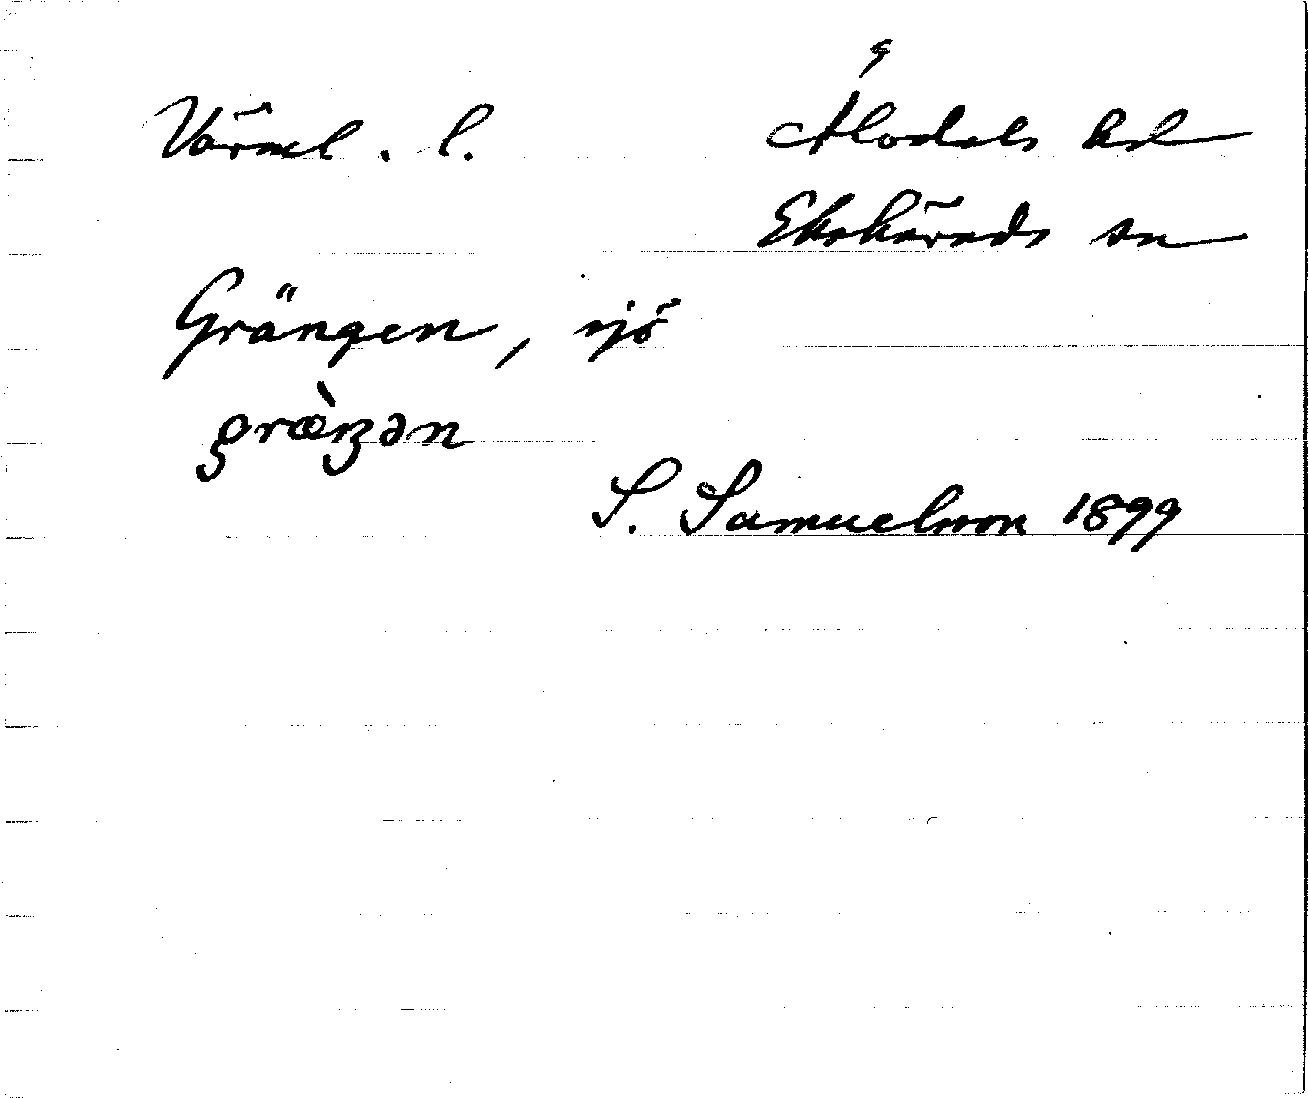 Värml. l. Älvdals hd
Ekshärads sn
Grängen, sjö
græ̀ŋən
S. Samuelsson 1899